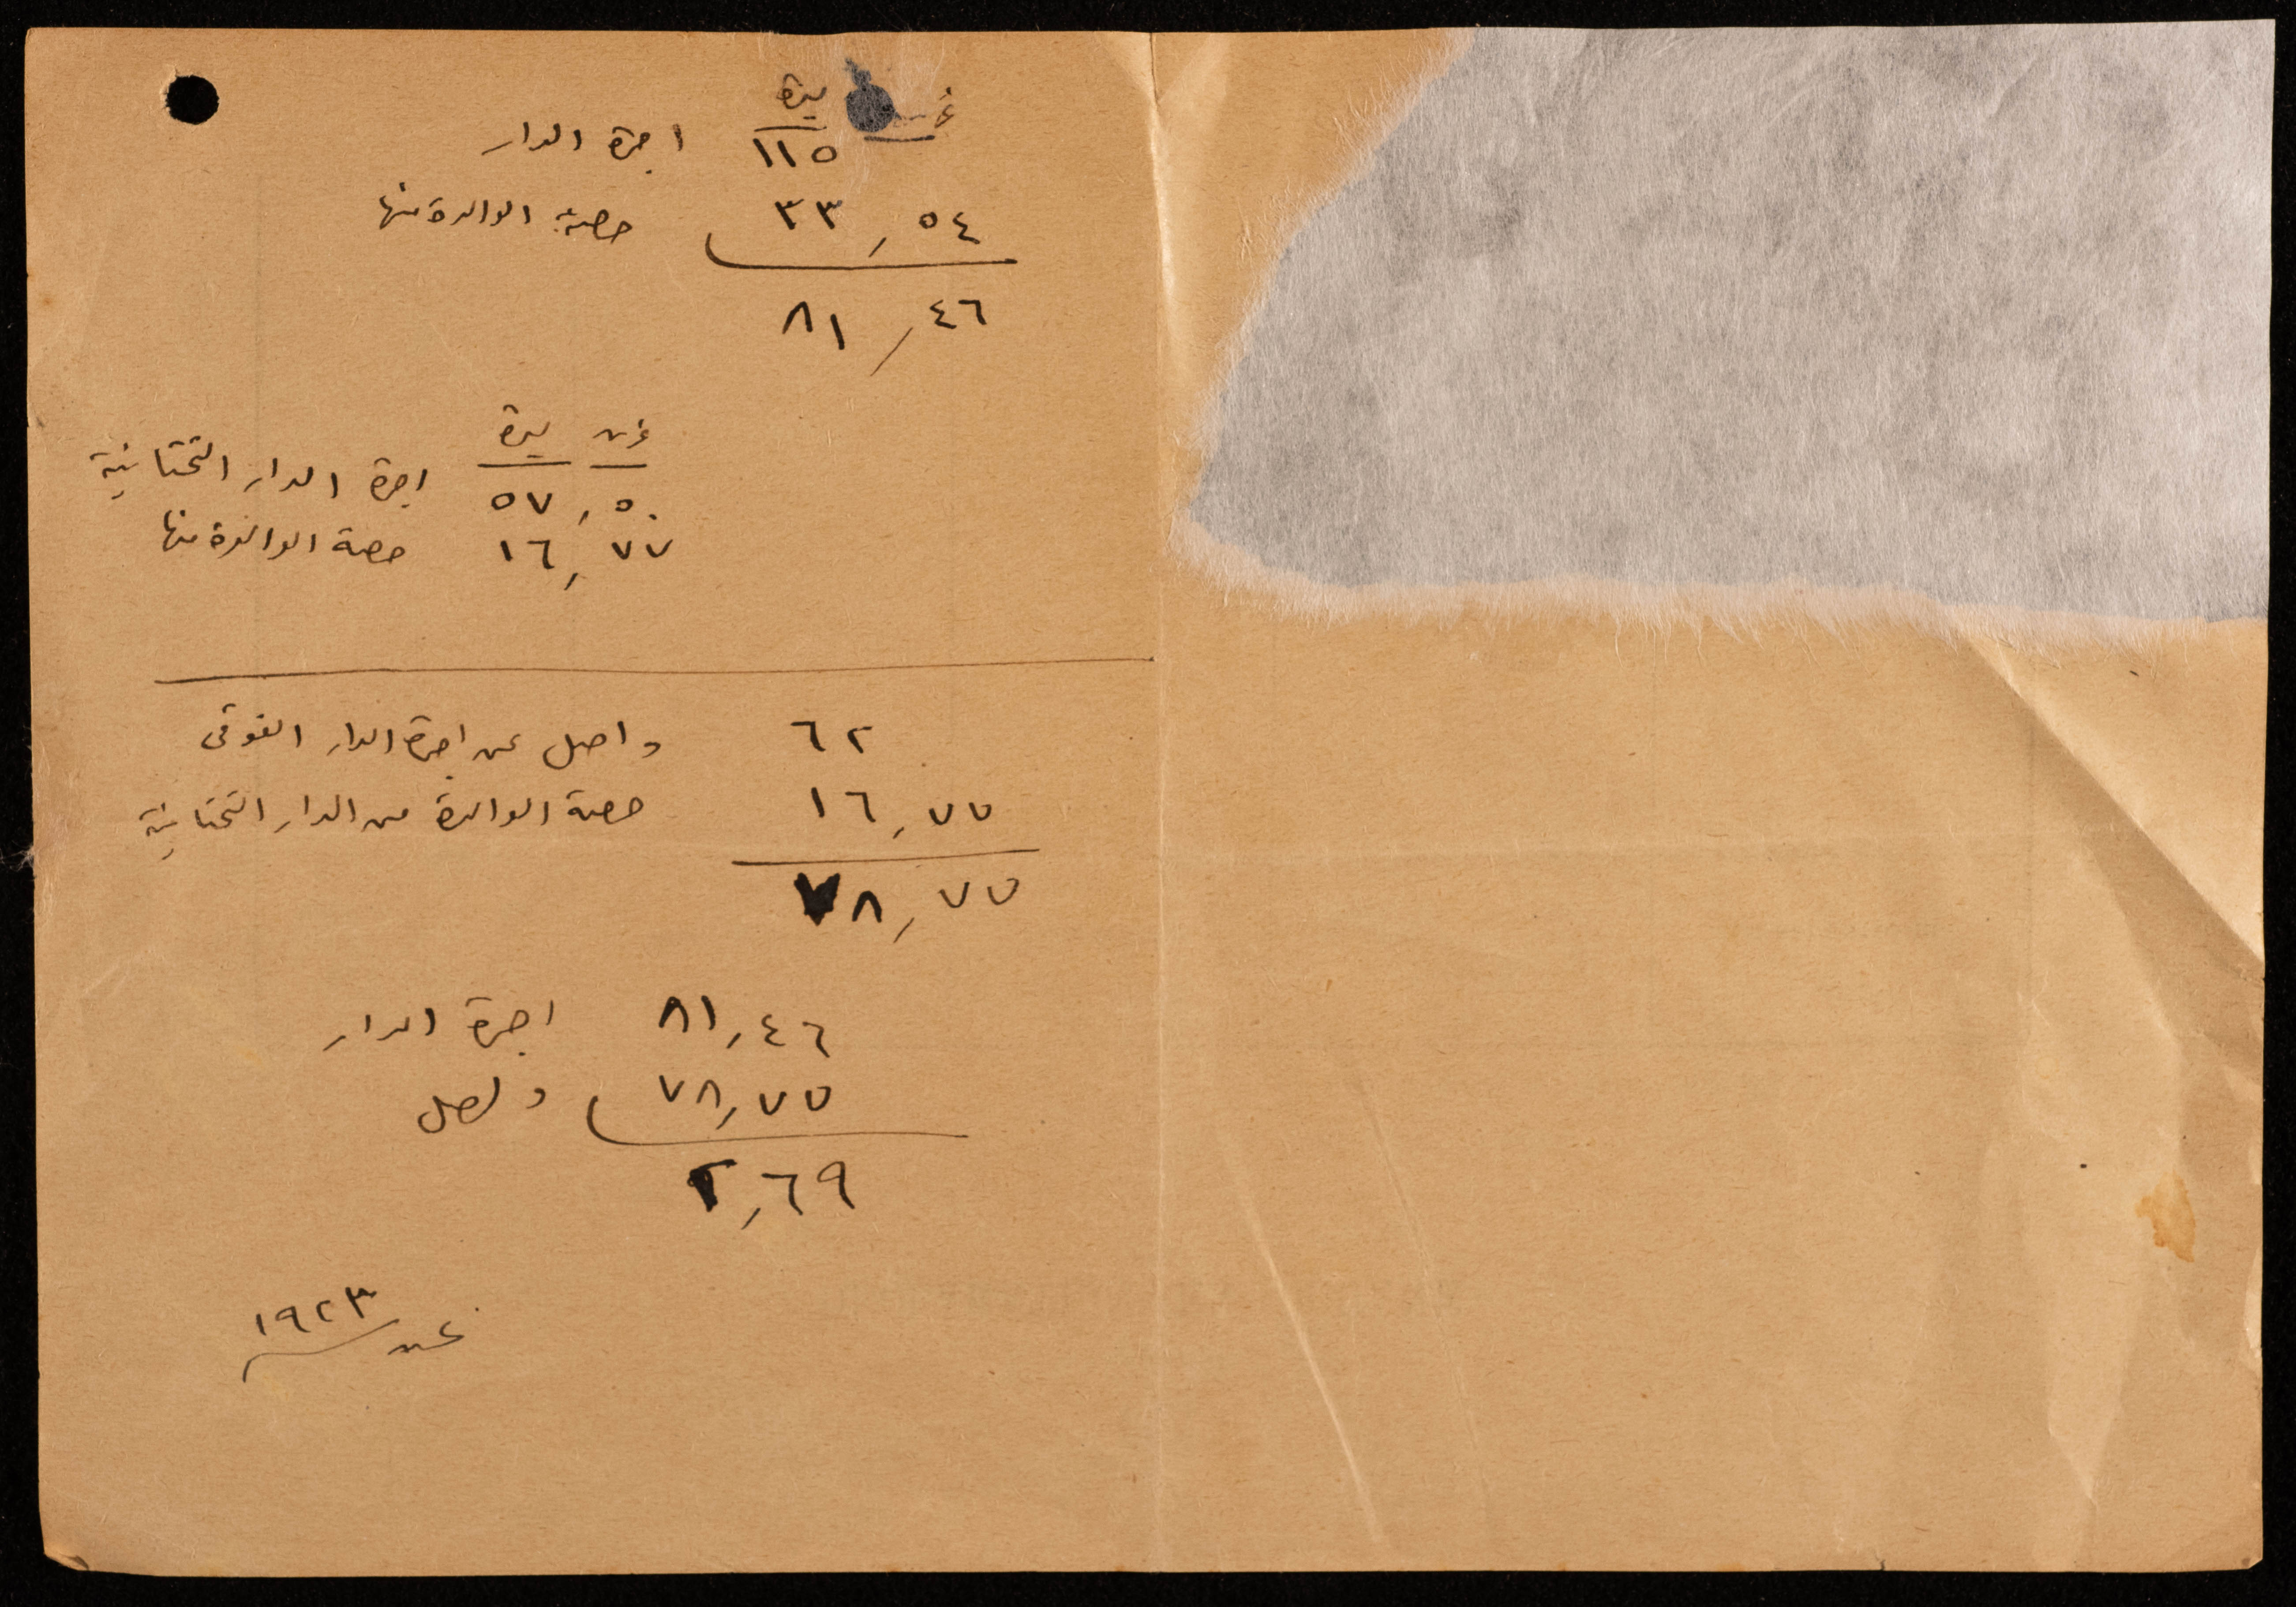 ليرة
١١٥ اجرة الدار
٣٣,٥٤ حصة الوالدة منها
٨١,٤٦
غرش ليرة
٥٧,٥٠ اجرة الدار التحتانية
١٦,٧٧ حصة الوالدة منها
٦٢ واصل عن اجرة الدار الفوقى
١٦,٧٧ حصة الوالدة من الدار التحتانية
٧٨,٧٧
٨١,٤٦ اجرة الدار
٧٨,٧٧ واصل
٢,٦٩
عن ١٩٢٣